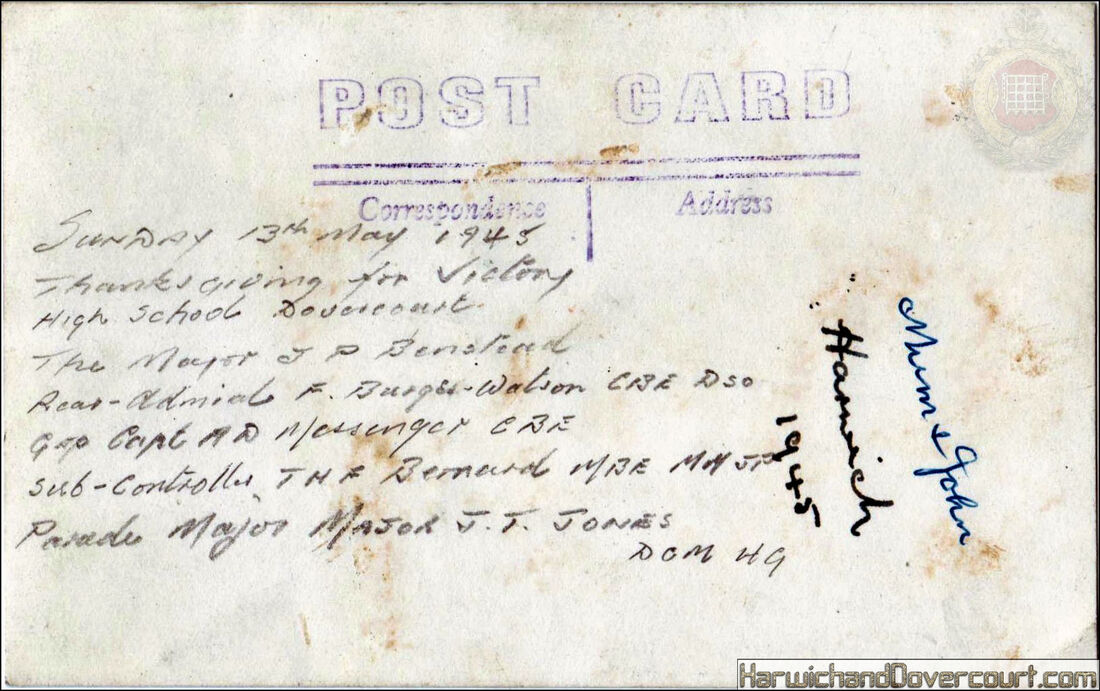 POST CARD
Correspondence
Address
SUNDAY 13th May 1945
Thanksgiving for Victory
High School Dovercourt
The Major J P Benstead
Rear-Admial F. Burges-Watson CBE DSO
Grp Capt AD Messenger CBE
Sub-Controller THF Bernard MBE MM JP
Parade Major MAJOR J.T. JONES
DCM HG
Harwich
1945
Mum & John
HarwichandDovercourt.com